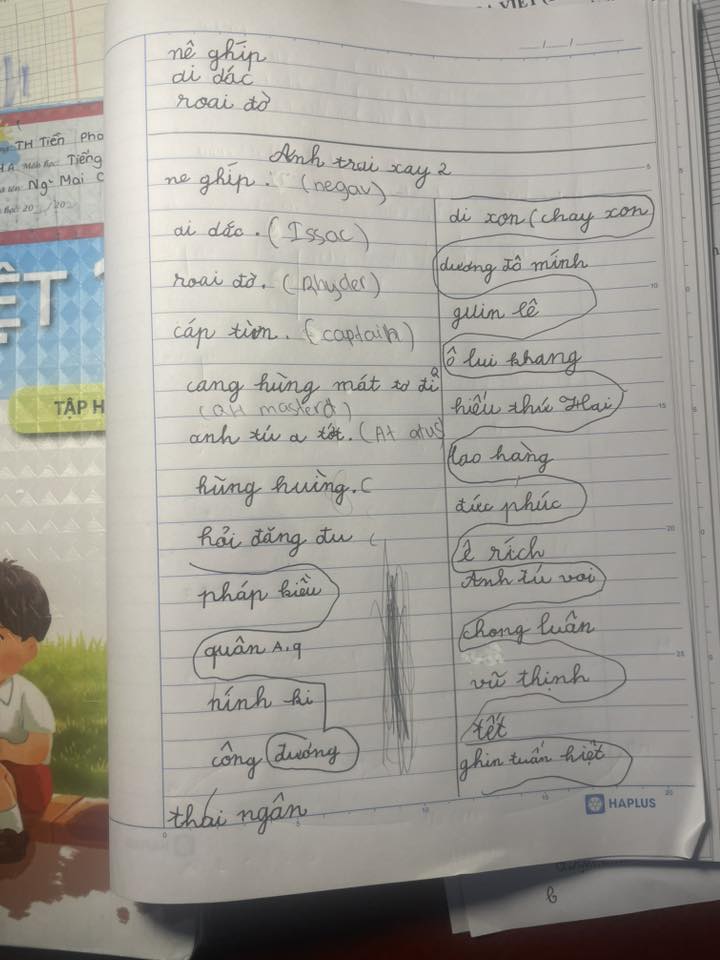 VIẾT
nê ghíp
di dắc
roai đờ
__/__/__
Anh trai xay 2
ne ghíp. (negav)
ai dắc. (Issac)
roai đờ. (Rhyder)
cáp tìm. (captaih)
cang hùng mát tơ đi
(QH masterd)
anh tú a tót. (At atus)
hùng huỳng. (
hải đăng đu (
pháp kiều
quân A.q
nính ki
công đương
thái ngân
di xon (chay xon
dương đô mính
guin lê
ô lui khang
hiếu thứ Hai
lao hàng
đức phúc
ê rích
Anh tú voi
chong luân
vũ thịnh
tết
ghin tuấn hiệt
HAPLUS
TH Tiền Pho
Môn học: Tiếng
Ng. Mai C
ỆT 1
TẬP H